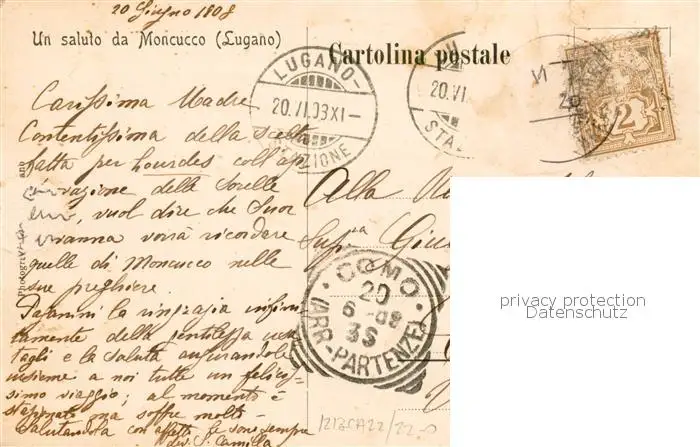 20 Giugno 1908
Un saluto da Moncucco (Lugano)
Cartolina postale
LUGANO-
20.VI.08XI-
STAZIONE
20.VI
STAZ
2
Carissima Madre
Contentissima della scelta
fatta per Lourdes coll'ap
provazione delle Sorelle
vuol dire che Suor
vanna vorrà ricordare
quelle di Moncucco nelle
sue preghiere.
la ringrazia infini
tamente della gentilezza
e la saluta augurandole
insieme a noi tutte un felicis
simo viaggio; al momento è
ma soffre molto -
Salutandola con affetto le sono sempre
S. Camilla
Alla
Sup.ra
COMO
20
6-08
3S
(ARR-PARTENZE)
privacy protection
Datenschutz